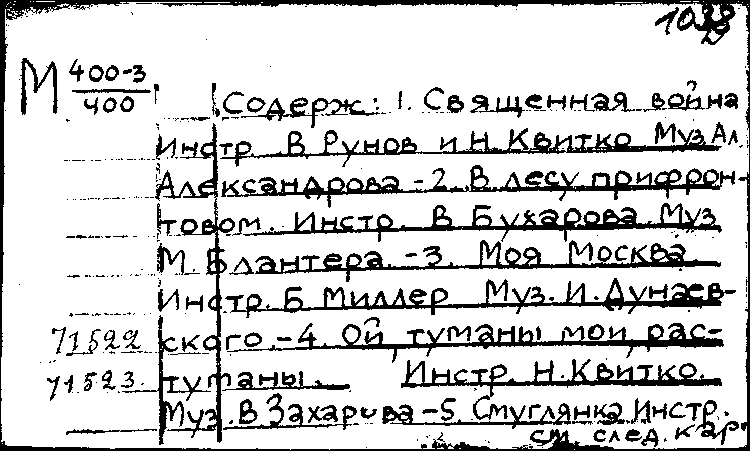 1038
М 400-3
400
Содерж: 1. Священная война
Инстр. В Рунов и Н. Квитко Муз Ал
Александрова - 2. В лесу прифрон-
товом. Инстр. В Бухарова. Муз
М. Блантера. - 3. Моя Москва.
Инстр. Б Миллер Муз. И. Дунаев-
71522 ского. - 4. Ой туманы мои, рас-
71523. туманы. Инстр. Н. Квитко.
Муз. В Захарова - 5. Смуглянка Инстр.
см. след. кар.